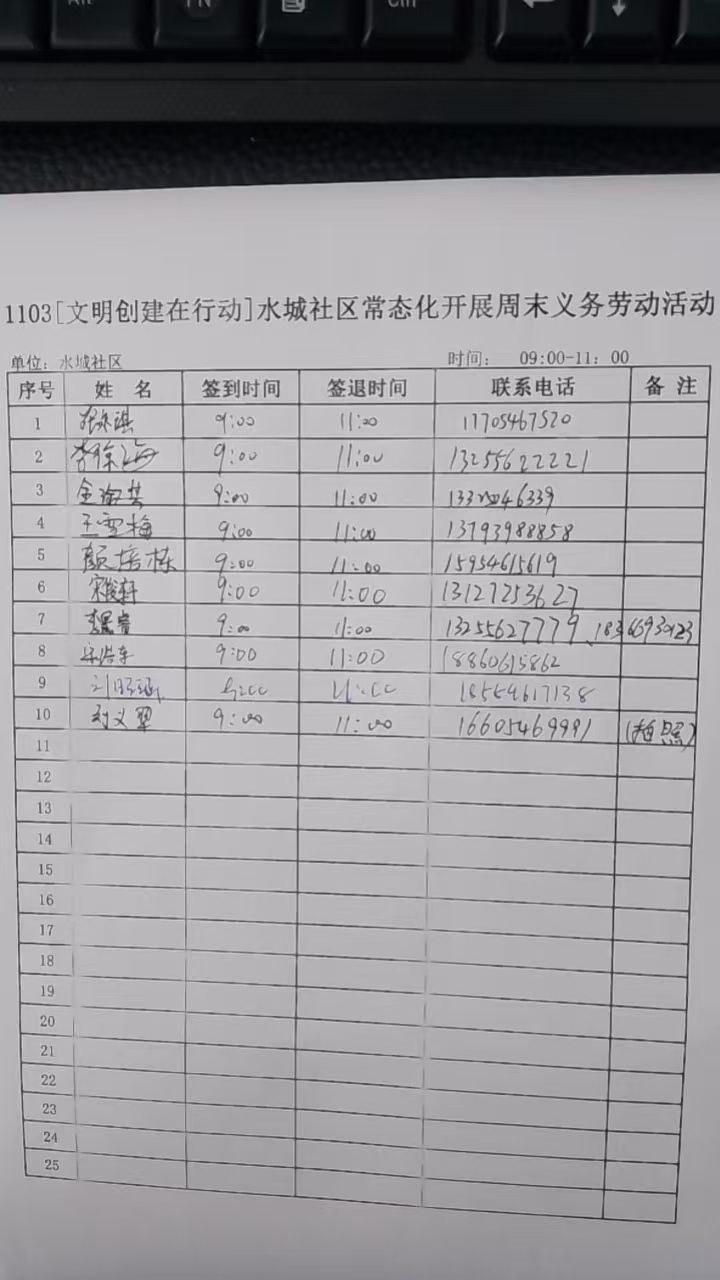 Fn
Ctrl
1103[文明创建在行动]水城社区常态化开展周末义务劳动活动
单位：水城社区 时间： 09:00-11：00
序号 姓 名 签到时间 签退时间 联系电话 备 注
1 9:00 11:00 17705467520
2 李徐海 9:00 11:00 13255622221
3 9:00 11:00
4 王雪梅 9:00 11:00 13793988858
5 颜培栋 9:00 11:00 15954615619
6 9:00 11:00 13127253627
7 9:00 11:00 13255627779、
8 9:00 11:00 18860615862
9 18554617138
10 刘义翠 9:00 11:00 16605469991 (拍照)
11
12
13
14
15
16
17
18
19
20
21
22
23
24
25